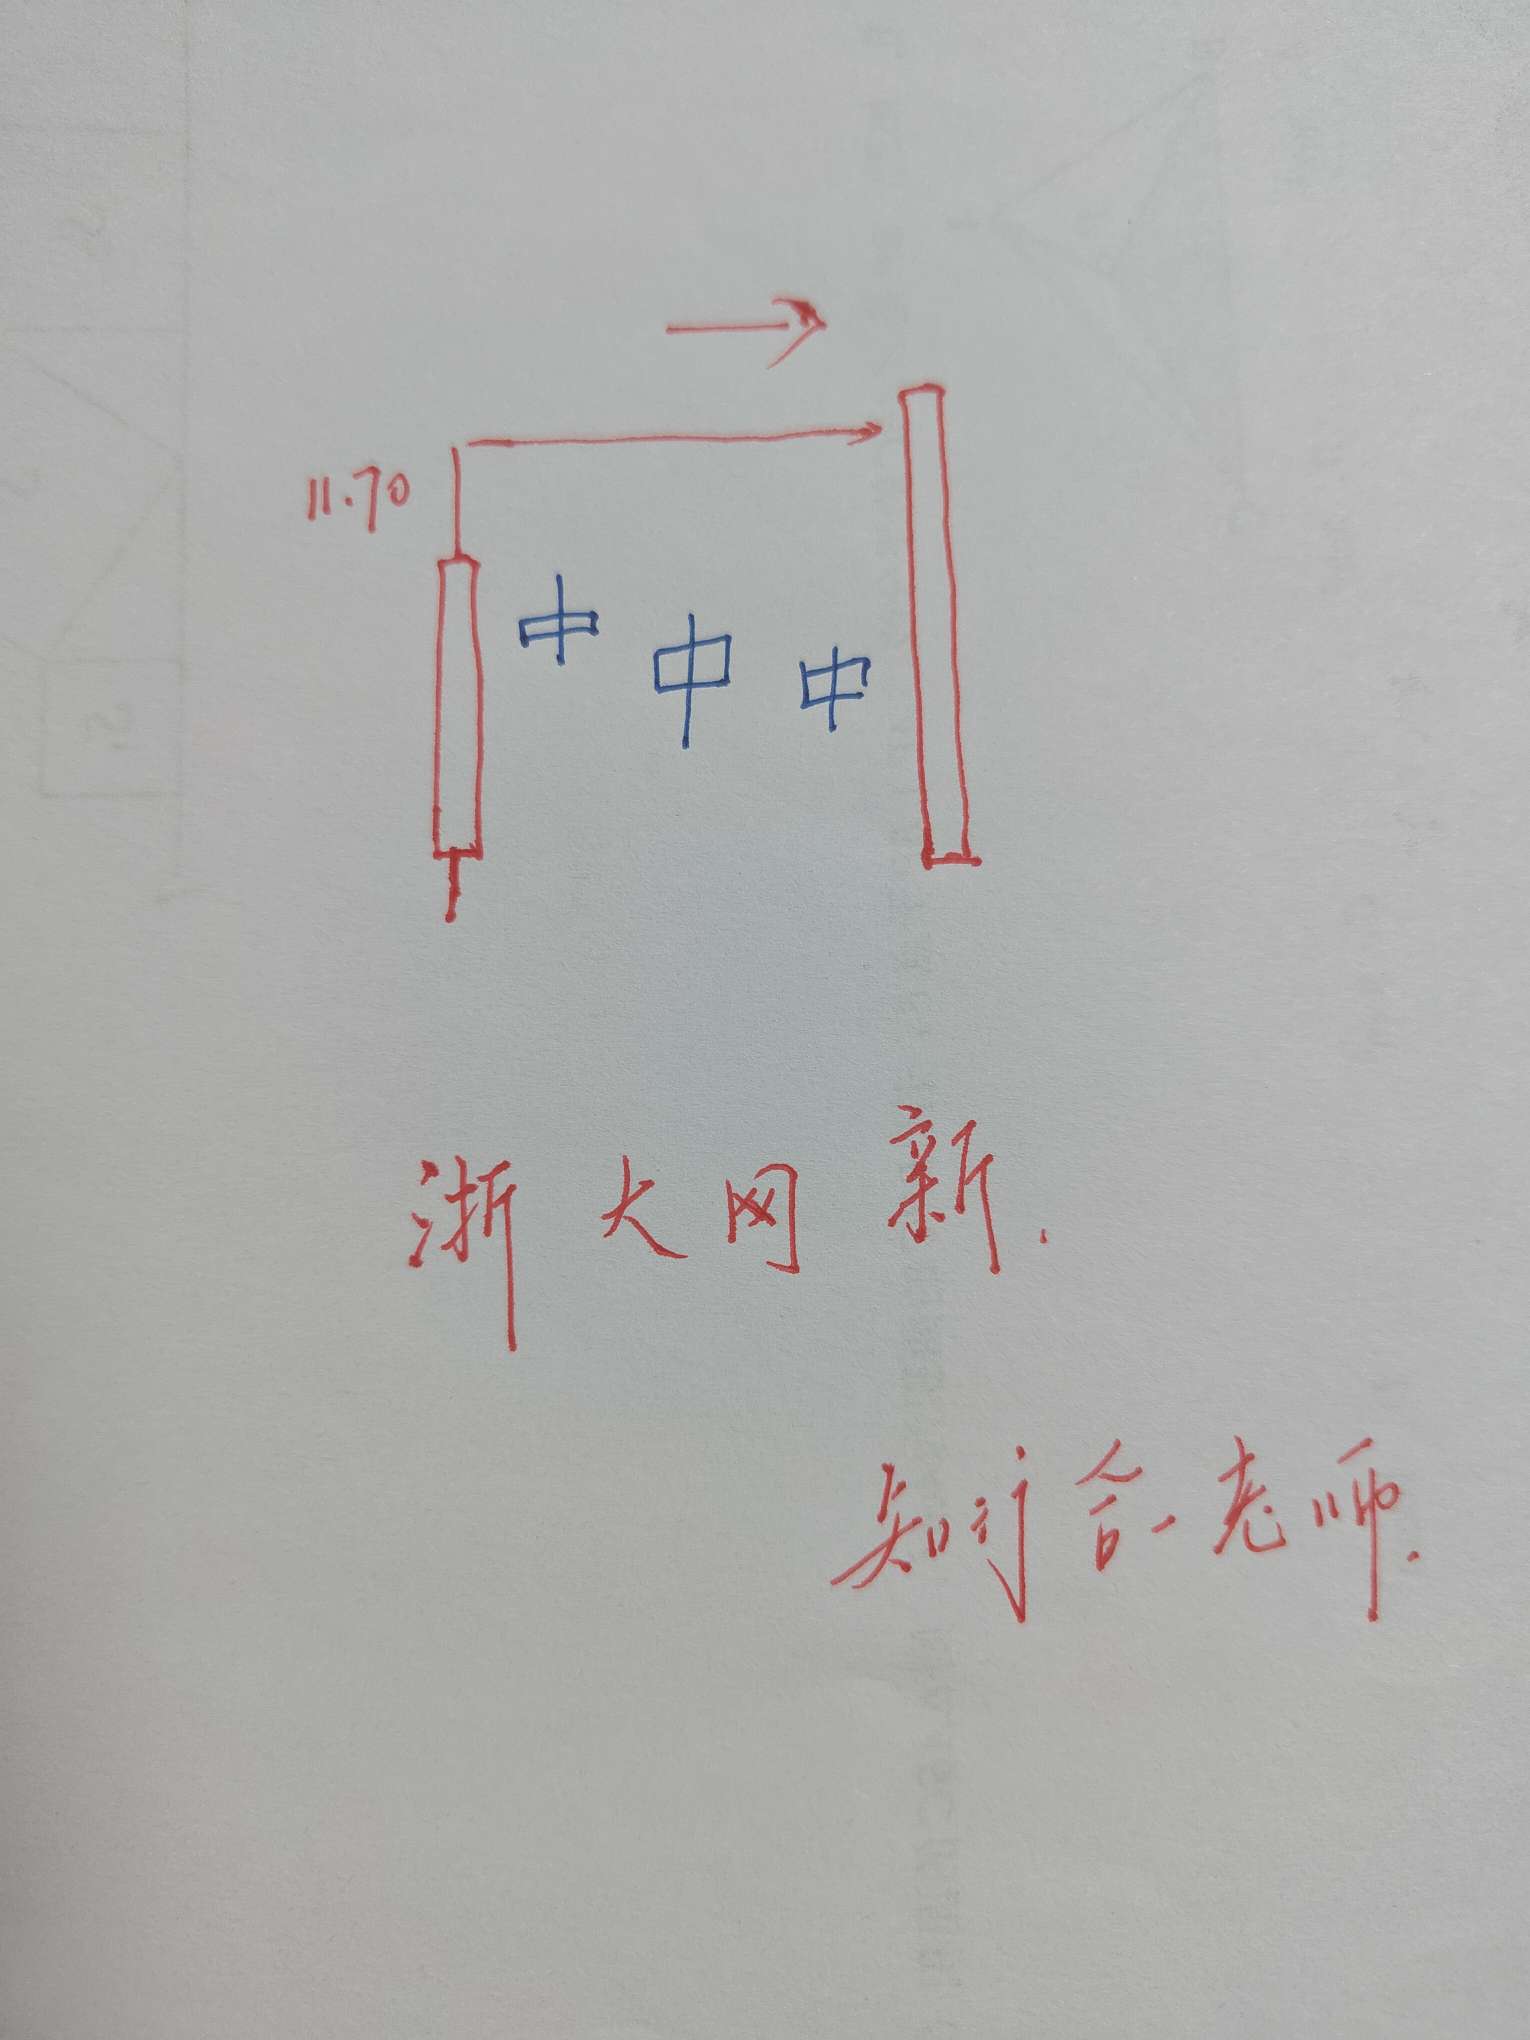 11.70
浙大网新.
知行合一老师.